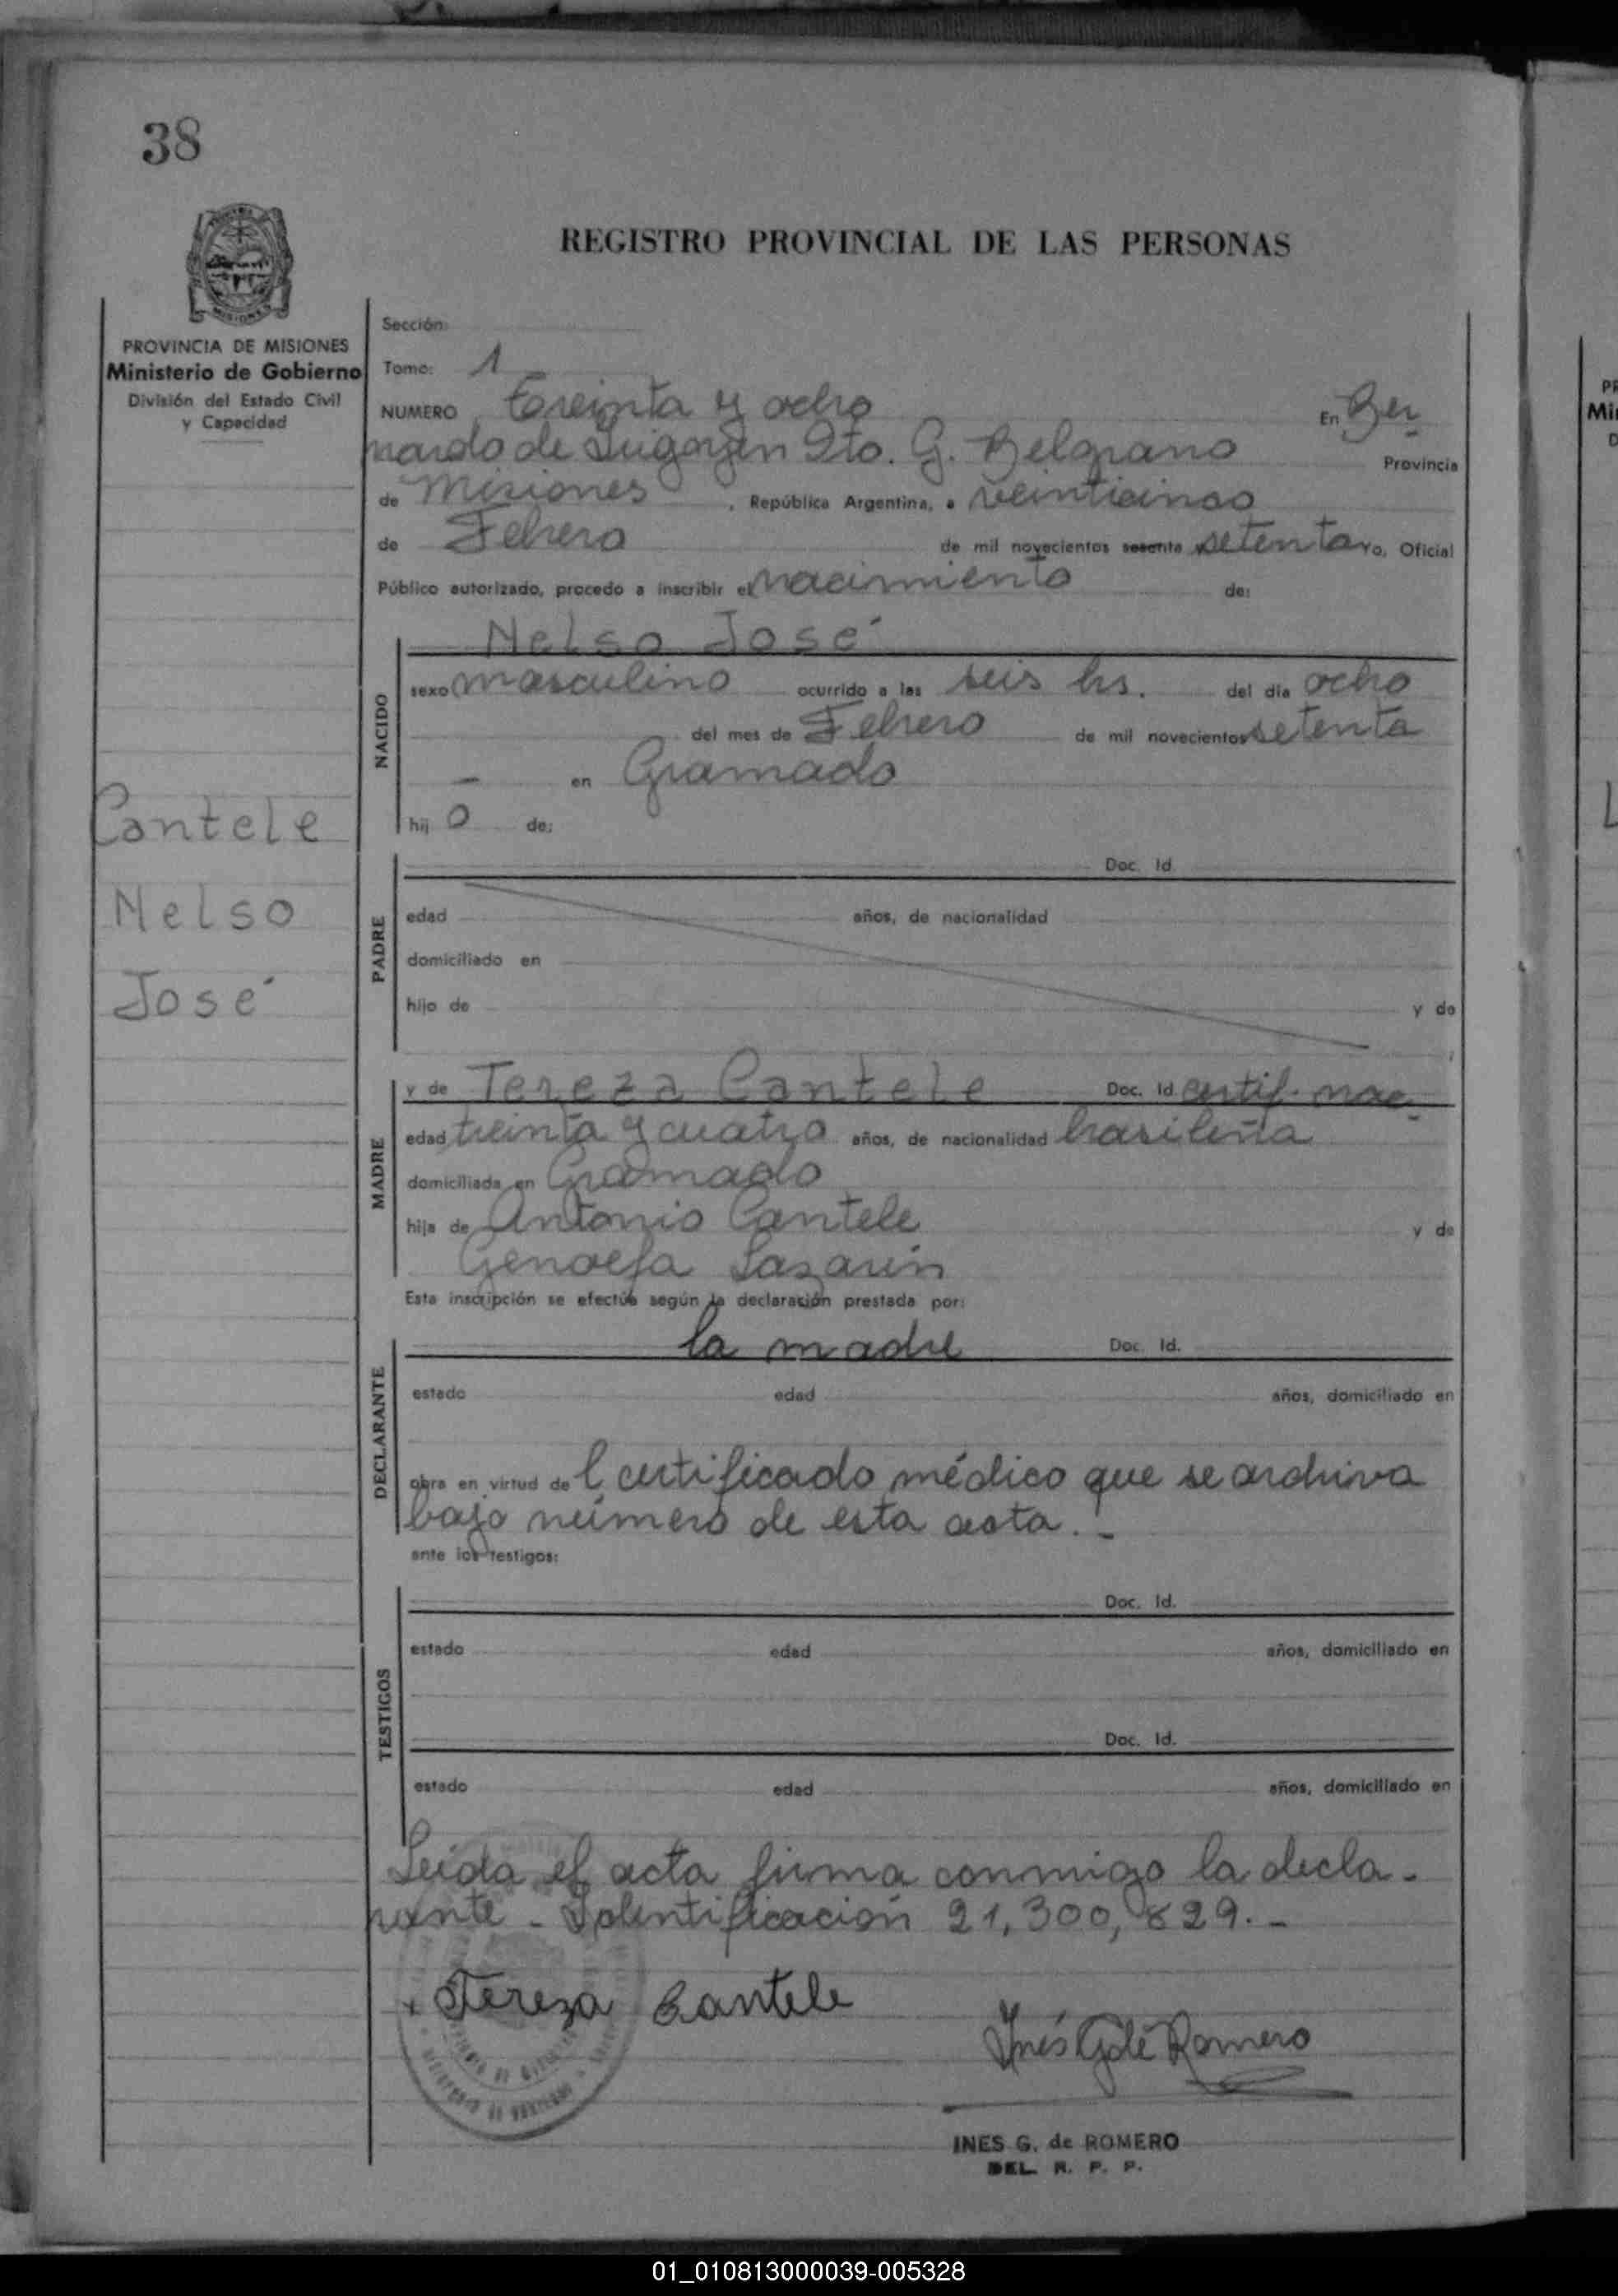 38
REGISTRO PROVINCIAL DE LAS PERSONAS
MISIONES
PROVINCIA DE MISIONES
Ministerio de Gobierno
División del Estado Civil
y Capacidad
Cantele
Nelso
José
Sección:
Tomo: 1
NUMERO Treinta y ocho En Ber
nardo de Irigoyen Dto. G. Belgrano Provincia
de Misiones, República Argentina, a veinticinco
de Febrero de mil novecientos sesenta setenta yo, Oficial
Público autorizado, procedo a inscribir el nacimiento de:
NACIDO
Nelso José
sexo masculino ocurrido a las seis hs. del día ocho
del mes de Febrero de mil novecientos setenta
— en Gramado
hij o de:
PADRE
Doc. Id.
edad años, de nacionalidad
domiciliado en
hijo de y de
MADRE
y de Tereza Cantele Doc. Id. certif. nac.
edad treinta y cuatro años, de nacionalidad brasileña
domiciliada en Gramado
hija de Antonio Cantele y de
Genoefa Lazarin
Esta inscripción se efectúa según la declaración prestada por:
DECLARANTE
la madre Doc. Id.
estado edad años, domiciliado en
obra en virtud de l certificado médico que se archiva
bajo número de esta acta.-
ante los testigos:
TESTIGOS
Doc. Id.
estado edad años, domiciliado en
Doc. Id.
estado edad años, domiciliado en
Leida el acta firma conmigo la decla-
rante - Identificación 21,300,829.-
Tereza Cantele
Inés G de Romero
INES G. de ROMERO
DEL. R. P. P.
01_010813000039-005328